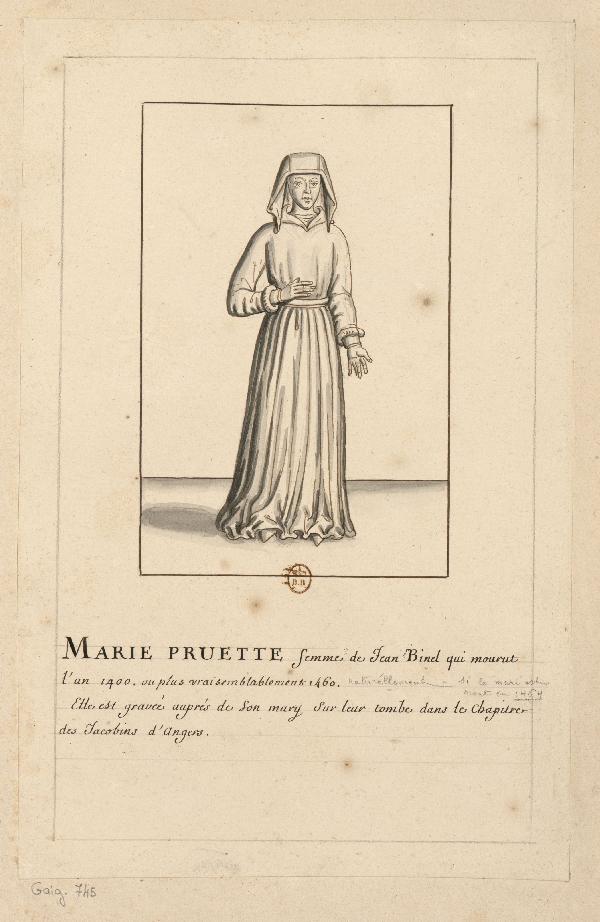 MARIE PRUETTE femme de Jean Binel qui mourut
l'an 1400. ou plus vraisemblablement 1460. naturellement - si le mari est
mort en 1464
Elle est gravée auprés de Son mary Sur leur tombe dans le Chapitre
des Jacobins d'Angers.
Gaig. 745